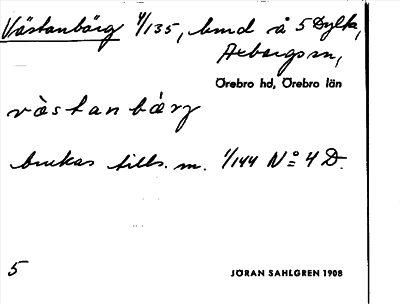 Västanbärg 4/135, hmd å 5 Dylta,
Axbergs sn,
Örebro hd, Örebro län
vàstanbärg
brukas tills. m. 1/144 No 4 D.
5
JÖRAN SAHLGREN 1908